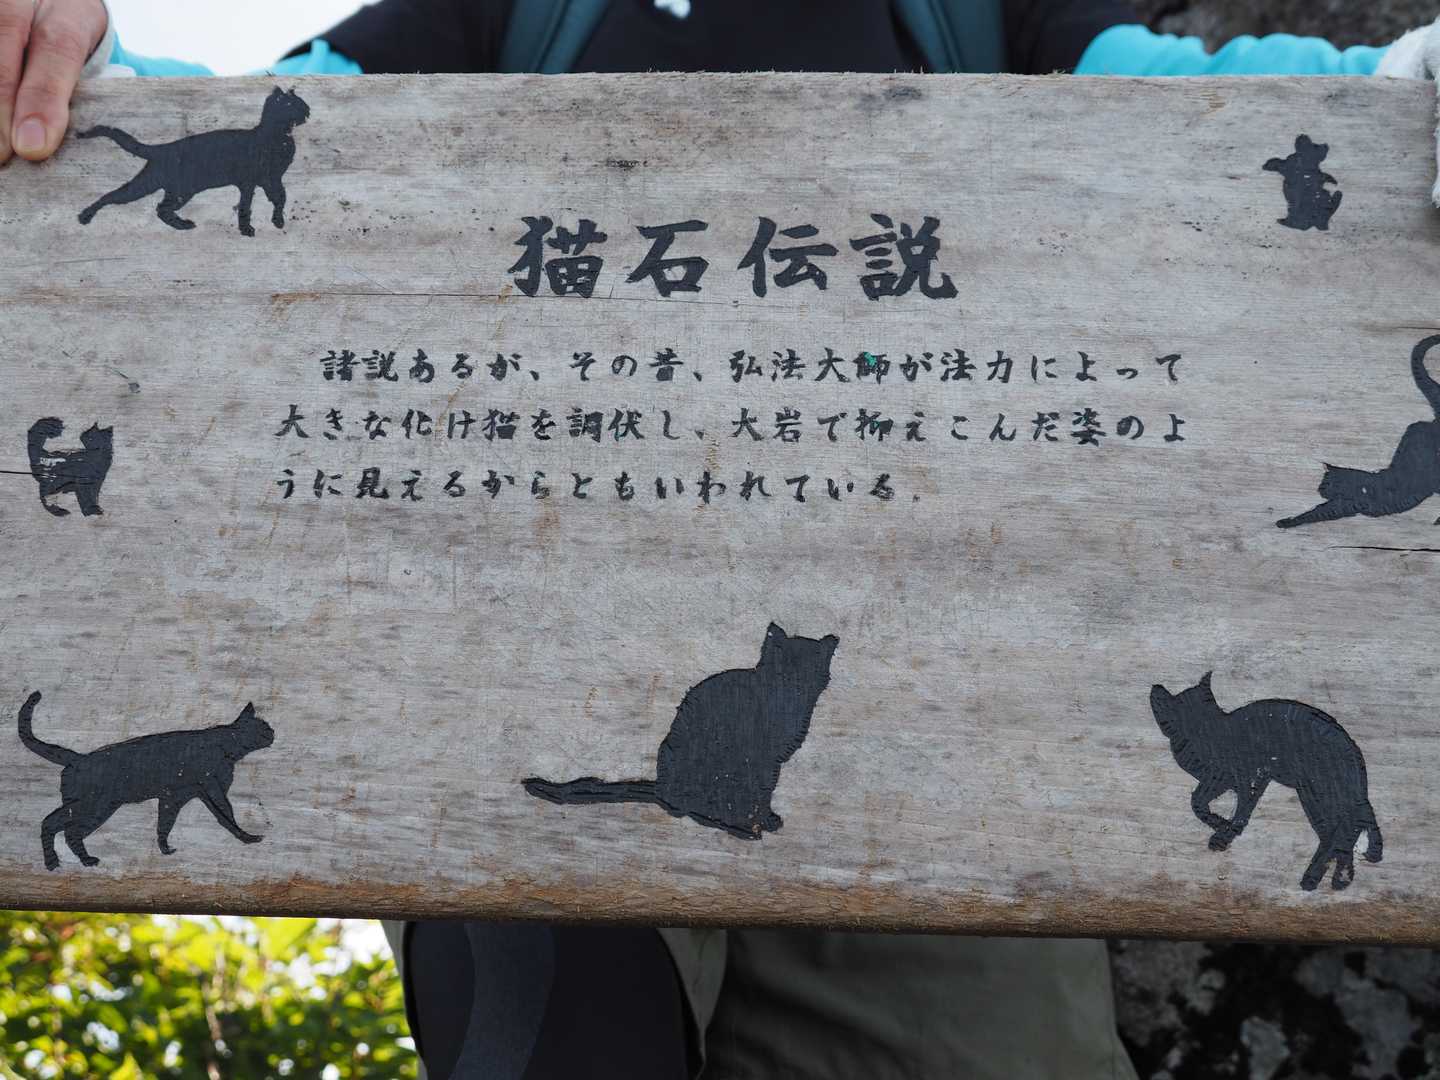 猫石伝説
諸説あるが、その昔、弘法大師が法力によって
大きな化け猫を調伏し、大岩で抑えこんだ姿のよ
うに見えるからともいわれている。